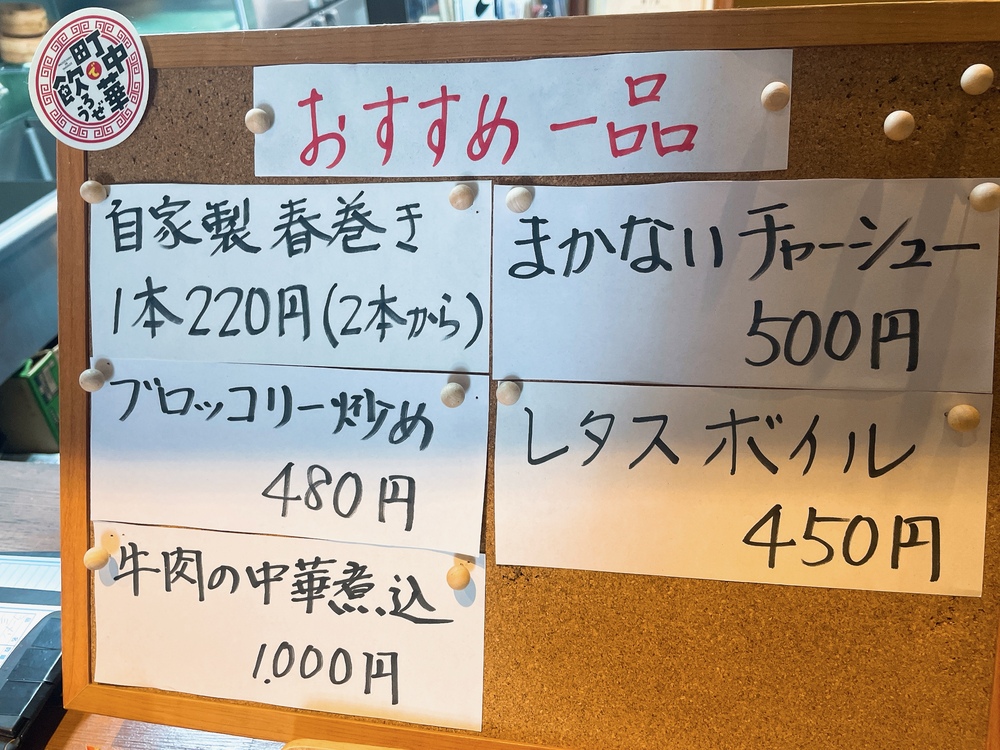 町中華
で
飲ろうぜ
おすすめ一品
自家製 春巻き
1本220円(2本から)
ブロッコリー炒め
480円
牛肉の中華煮込
1.000円
まかないチャーシュー
500円
レタス ボイル
450円